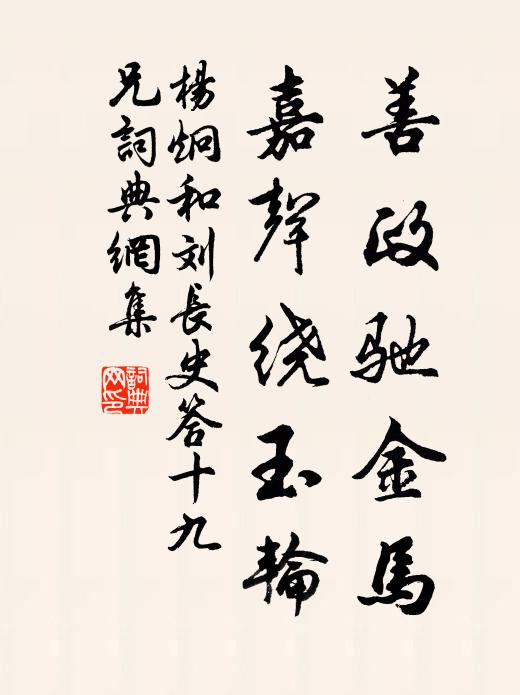 善政驰金马
嘉聲绕玉輪
楊炯和刘長史答十九
兄詞典網集
詞典网印